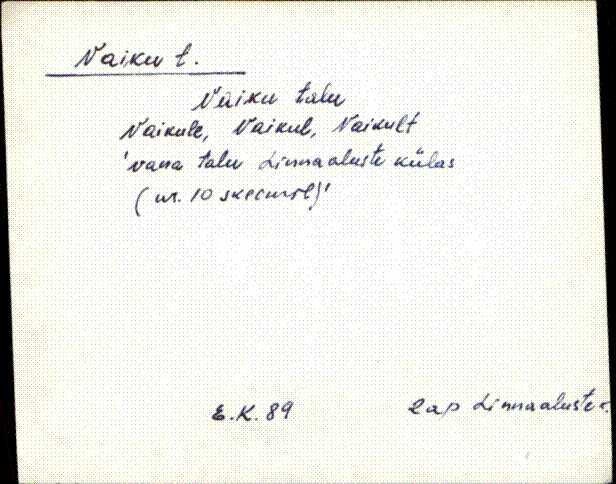 Naiku t.
Naiku talu
Naikule, Naikul, Naikult
'vana talu Linnaaluste külas
(nr. 10 skeemil)'
E.K. 89
Rap Linnaaluste k.